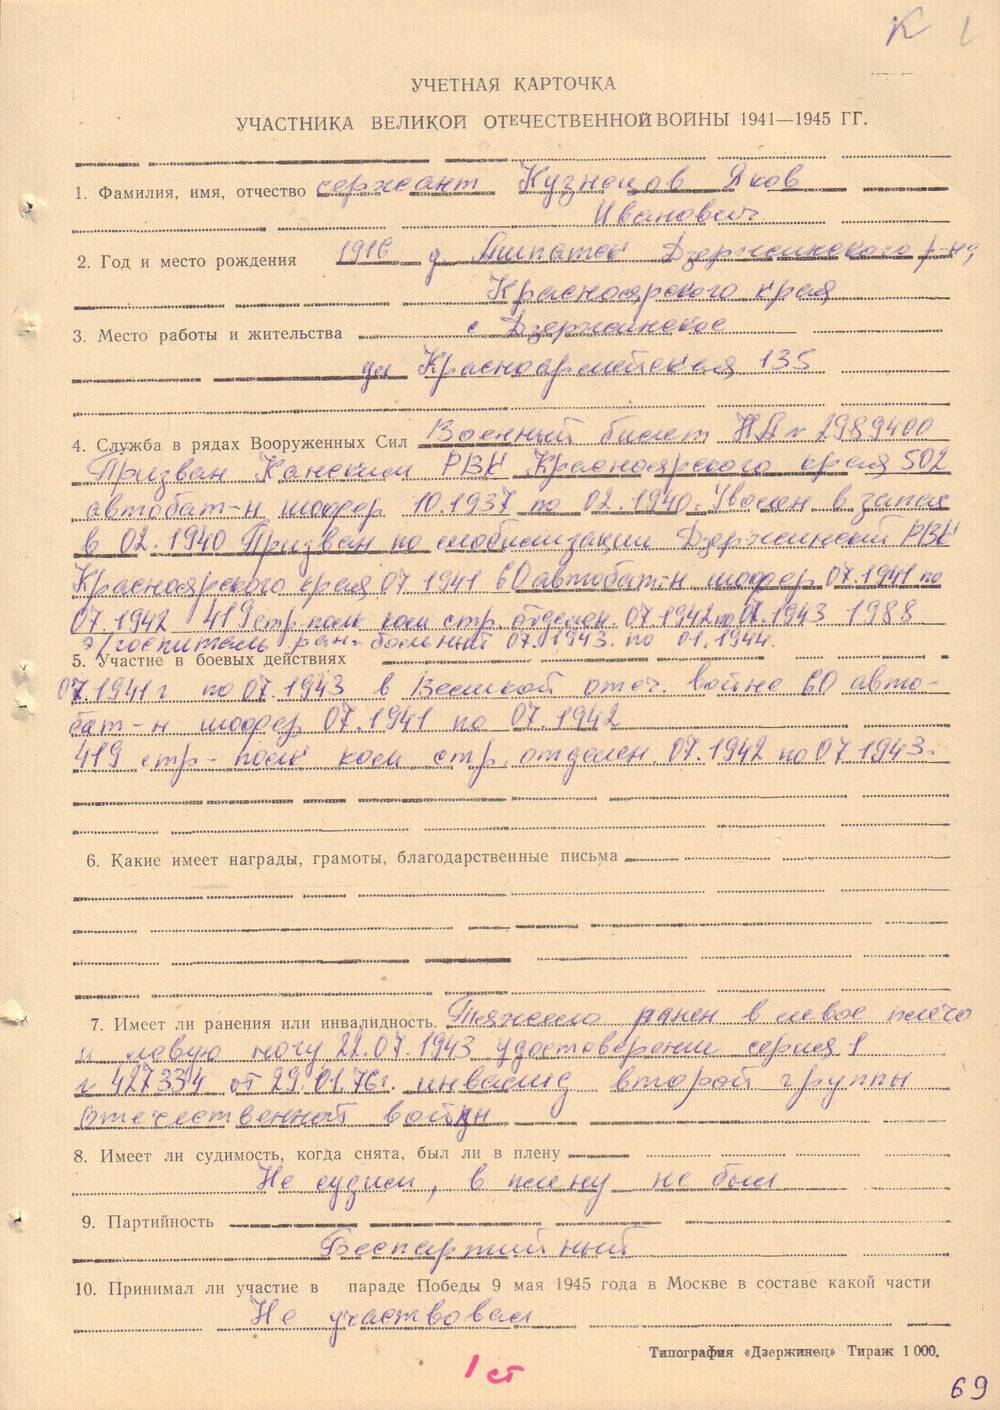 К 1
УЧЕТНАЯ КАРТОЧКА
УЧАСТНИКА ВЕЛИКОЙ ОТЕЧЕСТВЕННОЙ ВОЙНЫ 1941—1945 ГГ.
1. Фамилия, имя, отчество сержант Кузнецов Яков
Иванович
2. Год и место рождения 1916 д Дзержинского р-на
Красноярского края
3. Место работы и жительства с Дзержинское
ул Красноармейская 135
4. Служба в рядах Вооруженных Сил Военный билет НД № 2989400
Призван Канским РВК Красноярского края 502
автобат-н шофер 10.1937 по 02.1940. Уволен в запас
в 02.1940 Призван по мобилизации Дзержинский РВК
Красноярского края 07.1941 60 автобат-н шофер 07.1941 по
07.1942 419 стр полк ком стр. отделен. 07.1942 по 07.1943 1988
э/госпиталь ран. больный 07.1943. по 01.1944.
5. Участие в боевых действиях
07.1941 г по 07.1943 в Великой отеч. войне 60 авто-
бат-н шофер 07.1941 по 07.1942
419 стр-полк ком стр. отделен. 07.1942 по 07.1943.
6. Какие имеет награды, грамоты, благодарственные письма
7. Имеет ли ранения или инвалидность. Тяжело ранен в левое плечо
и левую ногу 22.07.1943 удостоверение серия 1
№ 427334 от 29.01.76г. инвалид второй группы
отечественной войны
8. Имеет ли судимость, когда снята, был ли в плену
Не судим, в плену не был
9. Партийность
Беспартийный
10. Принимал ли участие в параде Победы 9 мая 1945 года в Москве в составе какой части
Не участвовал
Типография «Дзержинец» Тираж 1 000.
1 ст
69